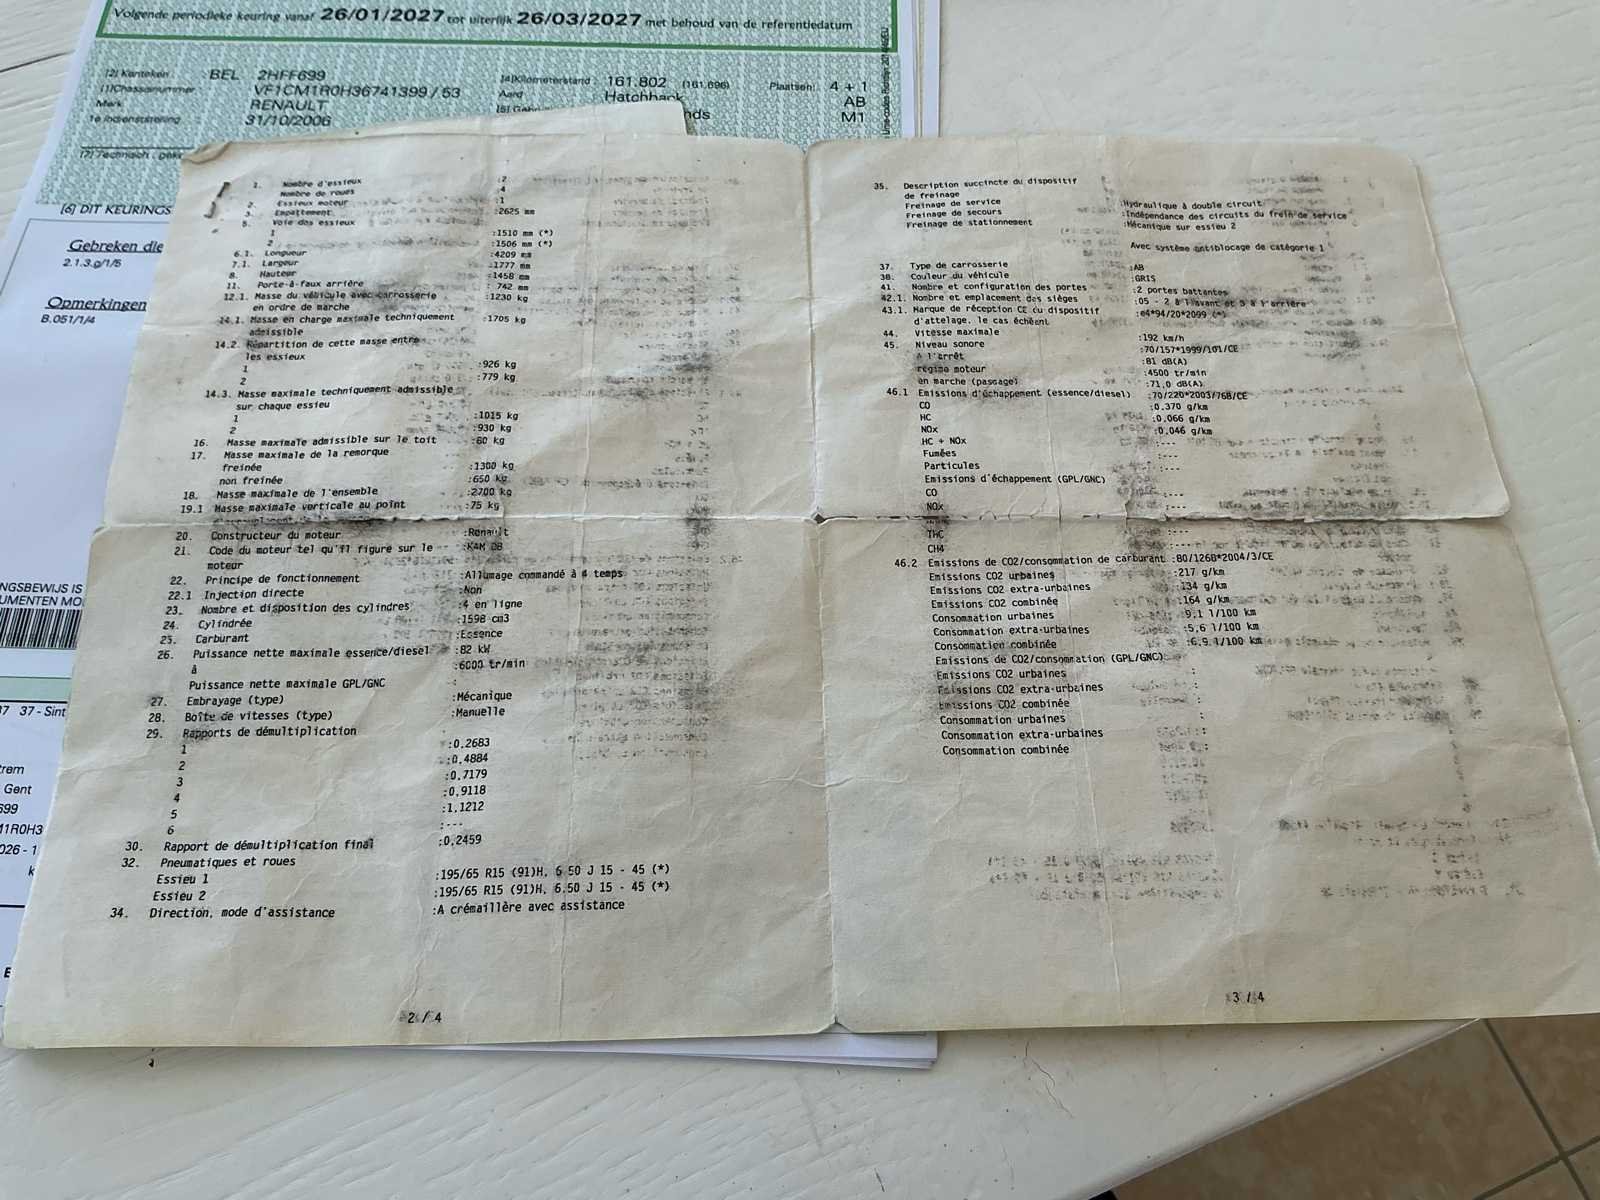 Volgende periodieke keuring vanaf 26/01/2027 tot uiterlijk 26/03/2027 met behoud van de referentiedatum
[2] Kenteken : BEL 2HFF699
[1] Chassisnummer VF1CM1R0H36741399 / 53
Merk RENAULT
1e indienststelling : 31/10/2006
[4] Kilometerstand : 161.802 (161.696)
Aard Hatchback
Plaatsen : 4 + 1
AB
M1
[6] DIT KEURINGS
Gebreken die
2.1.3.g/1/5
Opmerkingen
B.051/1/4
NGSBEWIJS IS
UMENTEN MO
37 37 - Sint
Gent
699
M1R0H3
1. Nombre d'essieux :2
Nombre de roues :4
2. Essieux moteur :1
3. Empattement :2625 mm
5. Voie des essieux
1 :1510 mm (*)
2 :1506 mm (*)
6.1. Longueur :4209 mm
7.1. Largeur :1777 mm
8. Hauteur :1458 mm
11. Porte-à-faux arrière : 742 mm
12.1. Masse du véhicule avec carrosserie :1230 kg
en ordre de marche
14.1. Masse en charge maximale techniquement :1705 kg
admissible
14.2. Répartition de cette masse entre
les essieux
1 :926 kg
2 :779 kg
14.3. Masse maximale techniquement admissible
sur chaque essieu
1 :1015 kg
2 :930 kg
16. Masse maximale admissible sur le toit :80 kg
17. Masse maximale de la remorque
freinée :1300 kg
non freinée :650 kg
18. Masse maximale de l'ensemble :2700 kg
19.1 Masse maximale verticale au point :75 kg
20. Constructeur du moteur :Renault
21. Code du moteur tel qu'il figure sur le :K4M D8
moteur
22. Principe de fonctionnement :Allumage commandé à 4 temps
22.1 Injection directe :Non
23. Nombre et disposition des cylindres :4 en ligne
24. Cylindrée :1598 cm3
25. Carburant :Essence
26. Puissance nette maximale essence/diesel :82 kW
à :6000 tr/min
Puissance nette maximale GPL/GNC :
27. Embrayage (type) :Mécanique
28. Boîte de vitesses (type) :Manuelle
29. Rapports de démultiplication
1 :0,2683
2 :0,4884
3 :0,7179
4 :0,9118
5 :1,1212
6 :---
30. Rapport de démultiplication final :0,2459
32. Pneumatiques et roues
Essieu 1 :195/65 R15 (91)H, 6.50 J 15 - 45 (*)
Essieu 2 :195/65 R15 (91)H, 6.50 J 15 - 45 (*)
34. Direction, mode d'assistance :A crémaillère avec assistance
2 / 4
35. Description succincte du dispositif
de freinage
Freinage de service :Hydraulique à double circuit
Freinage de secours :Indépendance des circuits du frein de service
Freinage de stationnement :Mécanique sur essieu 2
Avec système antiblocage de catégorie 1
37. Type de carrosserie :AB
38. Couleur du véhicule :GRIS
41. Nombre et configuration des portes :2 portes battantes
42.1. Nombre et emplacement des sièges :05 - 2 à l'avant et 3 à l'arrière
43.1. Marque de réception CE du dispositif :e4*94/20*2099 (*)
d'attelage, le cas échéant
44. Vitesse maximale :192 km/h
45. Niveau sonore :70/157*1999/101/CE
A l'arrêt :81 dB(A)
régime moteur :4500 tr/min
en marche (passage) :71,0 dB(A)
46.1 Emissions d'échappement (essence/diesel) :70/220*2003/76B/CE
CO :0,370 g/km
HC :0,066 g/km
NOx :0,046 g/km
HC + NOx :---
Fumées
Particules :---
Emissions d'échappement (GPL/GNC)
CO :---
NOx :---
THC :---
CH4 :---
46.2 Emissions de CO2/consommation de carburant :80/1268*2004/3/CE
Emissions CO2 urbaines :217 g/km
Emissions CO2 extra-urbaines :134 g/km
Emissions CO2 combinée :164 g/km
Consommation urbaines :9,1 l/100 km
Consommation extra-urbaines :5,6 l/100 km
Consommation combinée :6,9 l/100 km
Emissions de CO2/consommation (GPL/GNC)
Emissions CO2 urbaines :
Emissions CO2 extra-urbaines :
Emissions CO2 combinée :
Consommation urbaines :
Consommation extra-urbaines :
Consommation combinée :
3 / 4